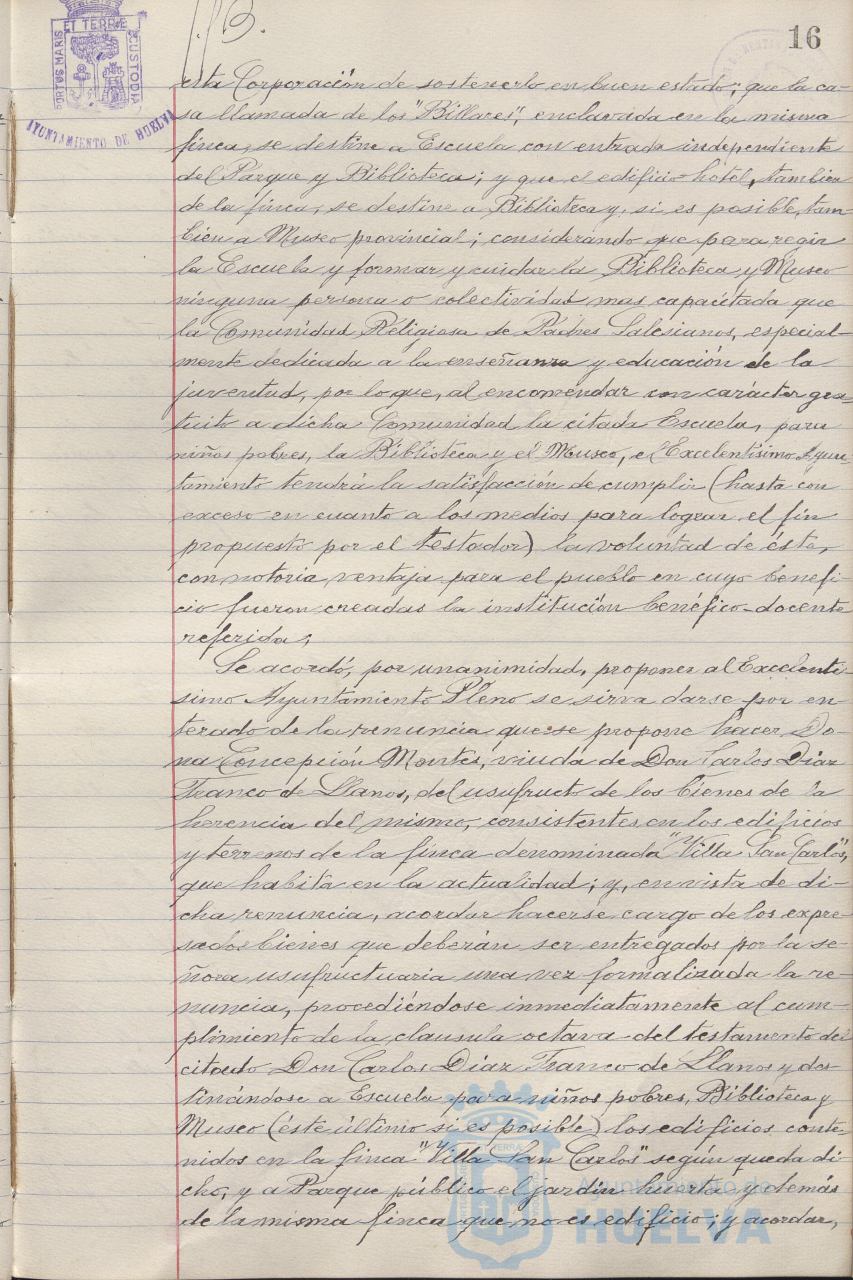 PORTUS MARIS ET TERRE CUSTODIA
AYUNTAMIENTO DE HUELVA
16
esta Corporación de sostenerlo en buen estado; que la ca-
sa llamada de los "Billares", enclavada en la misma
finca, se destine a Escuela con entrada independiente
del Parque y Biblioteca; y que el edificio-hotel, tambien
de la finca, se destine a Biblioteca y, si es posible, tam-
bien a Museo provincial; considerando que para regir
la Escuela y formar y cuidar la Biblioteca y Museo
ninguna persona o colectividad mas capacitada que
la Comunidad Religiosa de Padres Salesianos, especial-
mente dedicada a la enseñanza y educación de la
juventud, por lo que, al encomendar con carácter gra-
tuito a dicha Comunidad la citada Escuela, para
niños pobres, la Biblioteca y el Museo, el Excelentisimo Ayun-
tamiento tendrá la satisfacción de cumplir (hasta con
exceso en cuanto a los medios para lograr el fin
propuesto por el testador) la voluntad de éste,
con notoria ventaja para el pueblo en cuyo benefi-
cio fueron creadas la institución benéfico-docente
referida;
Se acordó, por unanimidad, proponer al Excelenti-
simo Ayuntamiento Pleno se sirva darse por en
terado de la renuncia que se propone hacer Do-
ña Concepción Montes, viuda de Don Carlos Diaz
Franco de Llanos, del usufructo de los bienes de la
herencia del mismo, consistentes en los edificios
y terrenos de la finca denominada "Villa San Carlos",
que habita en la actualidad; y, en vista de di-
cha renuncia, acordar hacerse cargo de los expre-
sados bienes que deberán ser entregados por la se-
ñora usufructuaria una vez formalizada la re-
nuncia, procediéndose inmediatamente al cum-
plimiento de la clausula octava del testamento del
citado Don Carlos Díaz Franco de Llanos y des-
tinándose a Escuela para niños pobres, Biblioteca y
Museo (éste último si es posible) los edificios conte-
nidos en la finca "Villa San Carlos" según queda di-
cho, y a Parque público el jardín huerta y demás
de la misma finca que no es edificio; y acordar,
Ayuntamiento de
HUELVA